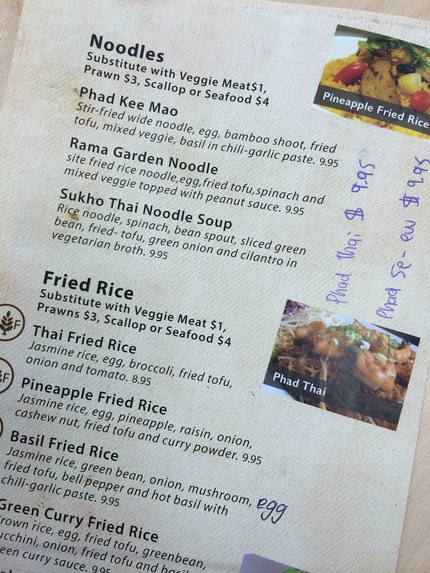 Noodles
Substitute with Veggie Meat$1,
Prawn $3, Scallop or Seafood $4
Phad Kee Mao
Stir-fried wide noodle, egg, bamboo shoot, fried
tofu, mixed veggie, basil in chili-garlic paste. 9.95
Rama Garden Noodle
site fried rice noodle,egg,fried tofu,spinach and
mixed veggie topped with peanut sauce. 9.95
Sukho Thai Noodle Soup
Rice noodle, spinach, bean spout, sliced green
bean, fried- tofu, green onion and cilantro in
vegetarian broth. 9.95
Pineapple Fried Rice
Phad Thai $ 9.95
Phad Se-ew $ 9.95
Fried Rice
Substitute with Veggie Meat $1,
Prawns $3, Scallop or Seafood $4
Thai Fried Rice
Jasmine rice, egg, broccoli, fried tofu,
onion and tomato. 8.95
Phad Thai
Pineapple Fried Rice
Jasmine rice, egg, pineapple, raisin, onion,
cashew nut, fried tofu and curry powder. 9.95
Basil Fried Rice
Jasmine rice, green bean, onion, mushroom, egg
fried tofu, bell pepper and hot basil with
chili-garlic paste. 9.95
Green Curry Fried Rice
rown rice, egg, fried tofu, greenbean,
ucchini, onion, fried tofu and basil
een curry sauce. 9.95